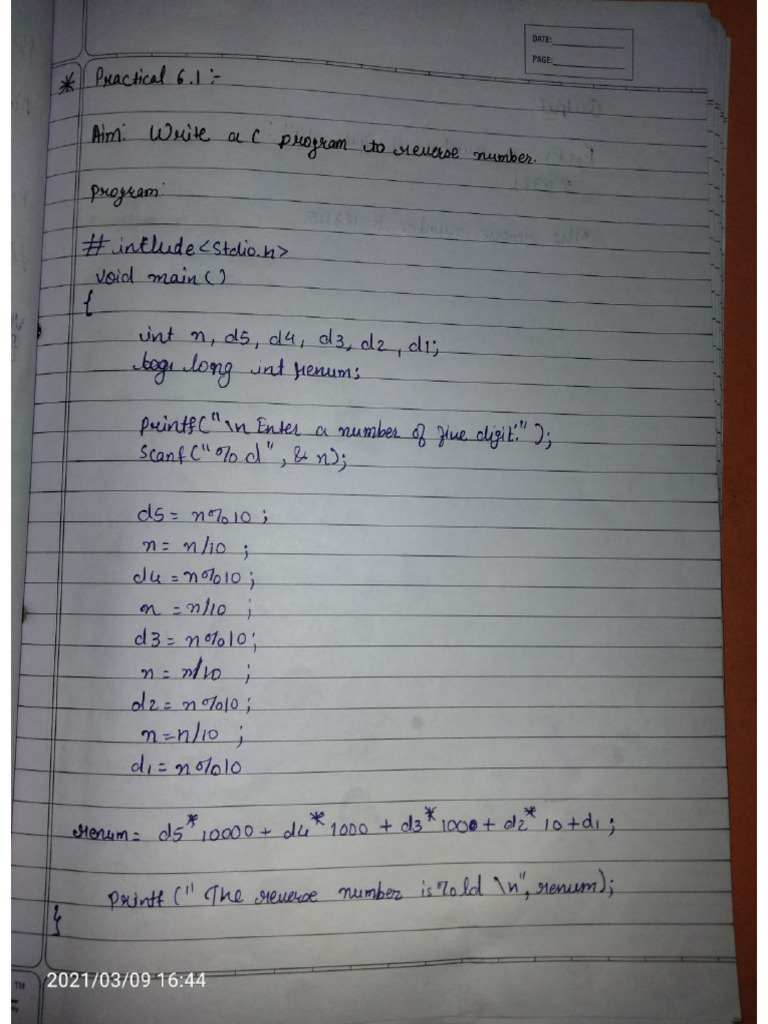 DATE:
PAGE:
* Practical 6.1:-
Aim: Write a C program to reverse number.
program:
#include<stdio.h>
void main()
{
int n, d5, d4, d3, d2, d1;
long int renum;
printf("\n Enter a number of five digit:");
scanf("%d", &n);
d5 = n%10;
n = n/10;
d4 = n%10;
n = n/10;
d3 = n%10;
n = n/10;
d2 = n%10;
n = n/10;
d1 = n%10
renum = d5*10000 + d4*1000 + d3*1000 + d2*10 + d1;
printf("The reverse number is %ld \n", renum);
}
TM
2021/03/09 16:44